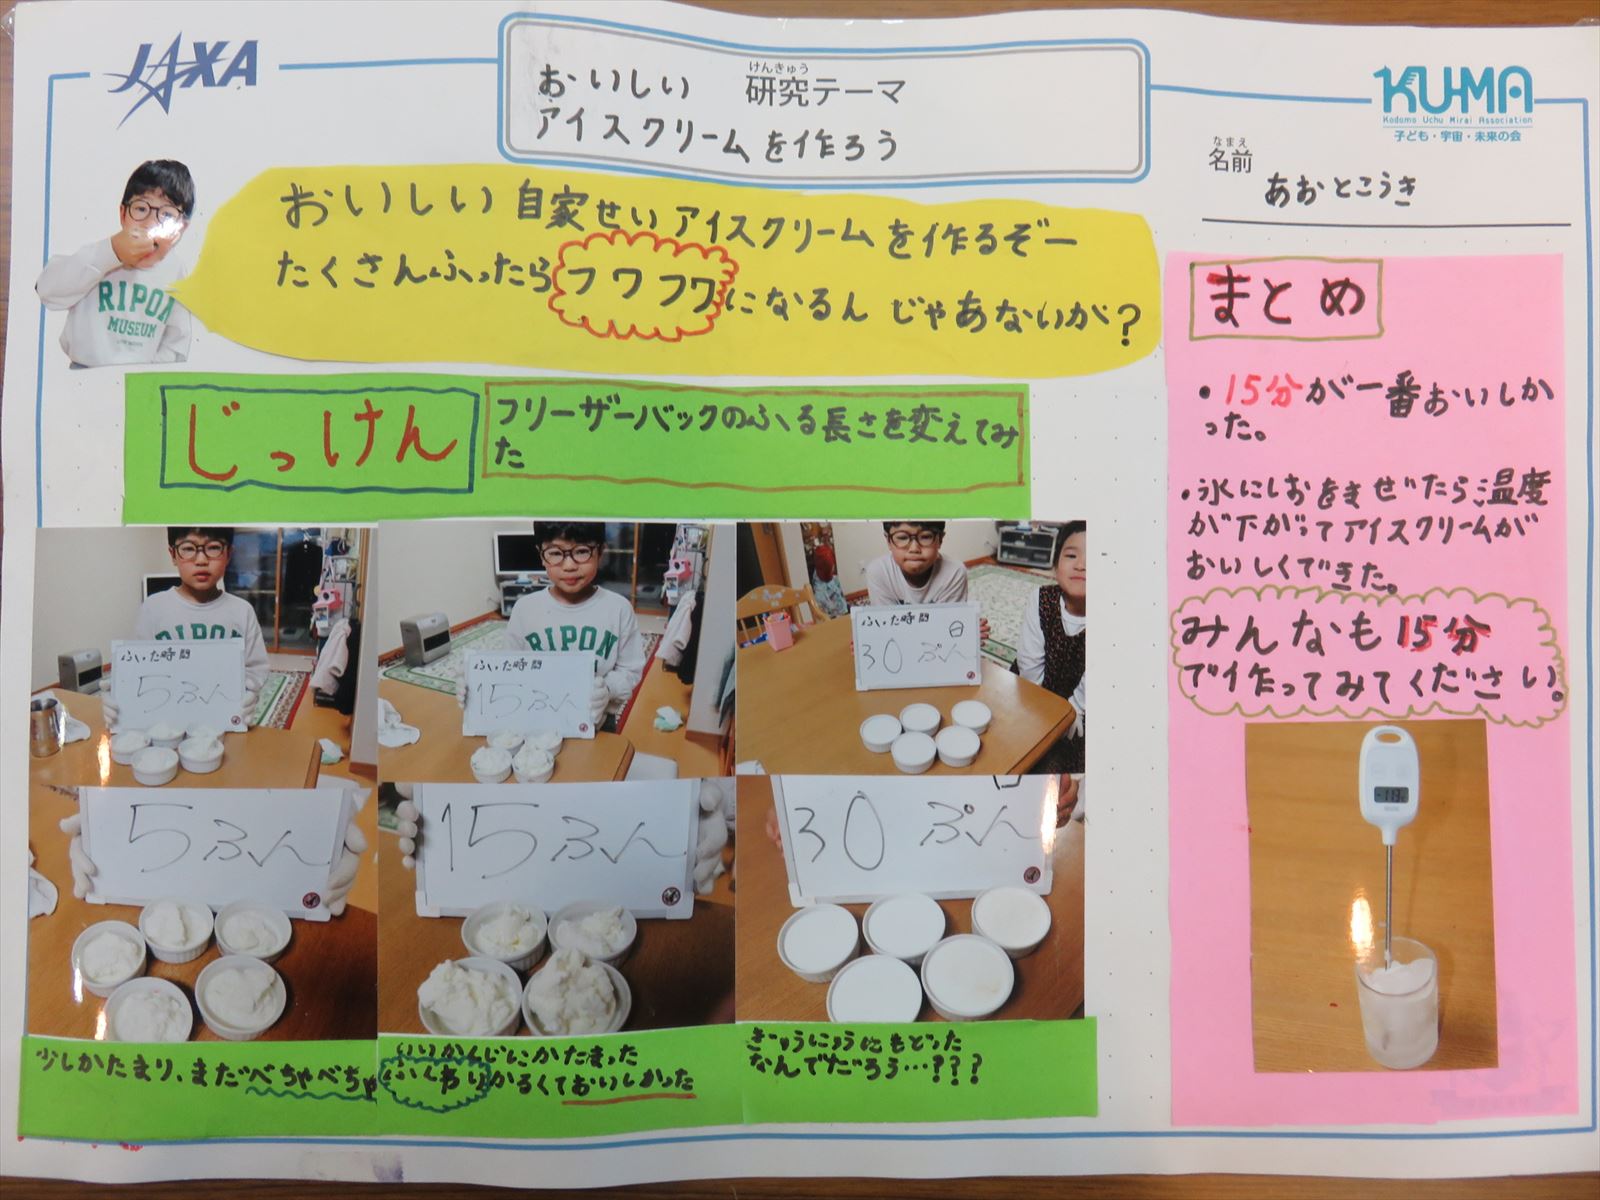 JAXA
けんきゅう
研究テーマ
おいしい
アイスクリームを作ろう
KU-MA
Kodomo Uchu Mirai Association
子ども・宇宙・未来の会
なまえ
名前
あおとこうき
おいしい自家せいアイスクリームを作るぞー
たくさんふったらフワフワになるん じゃあないが?
RIPON
MUSEUM
じっけん
フリーザーバックのふる長さを変えてみ
た
RIPON
ふった時間
5ふん
RIPON
ふった時間
15ふん
ふった時間
30ぷん
5ふん
15ふん
30ぷん
少しかたまり、まだべちゃべちゃ
いいかんじにかたまった
かるくておいしかった
ぎゅうにゅうにもどった
なんでだろう…???
まとめ
・15分が一番おいしか
った。
・氷にしおをまぜたら温度
が下がってアイスクリームが
おいしくできた。
みんなも15分
で作ってみてください。